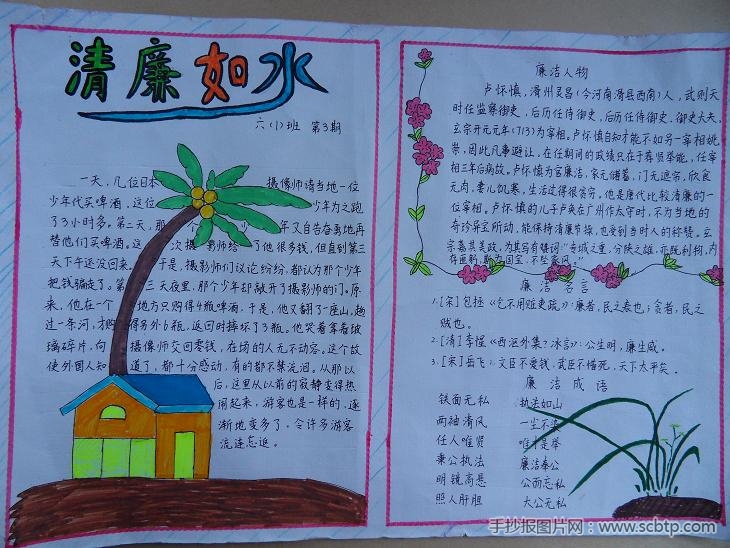 清廉如水
六(1)班 第3期
一天，几位日本 摄像师请当地一位
少年代买啤酒，这位 少年为之跑
了3小时多。第二天，那个 少年又自告奋勇地再
替他们买啤酒。这 次摄影师给了他很多钱，但直到第三
天下午还没回来。于是，摄影师们议论纷纷，都认为那个少年
把钱骗走了。第三天夜里，那个少年却敲开了摄影师的门。原
来，他在一个 地方只购得4瓶啤酒，于是，他又翻了一座山，趟
过一条河，才购得另外6瓶，返回时摔坏了3瓶。他哭着拿着玻
璃碎片，向 摄像师交回零钱，在场的人无不动容。这个故
使外国人知 道了，都十分感动，有的都不禁流泪。从那以
后，这里从以前的寂静变得热
闹起来，游客也是一样的，逐
渐地变多了，令许多游客
流连忘返。
廉洁人物
卢怀慎，滑州灵昌(今河南滑县西南)人，武则天
时任监察御史，后历任侍御史、御史大夫，
玄宗开元元年(713)为宰相。卢怀慎自知才能不如另一宰相姚
崇，因此凡事避让，在任期间的政绩只在于荐贤举能，任宰
相三年后病故。卢怀慎为官廉洁，家无储蓄，门无遮帘，饮食
无肉，妻儿饥寒，生活过得很贫穷。他是唐代比较清廉的一
位宰相。卢怀慎的儿子卢奂在广州作太守时，不为当地的
奇珍异宝所动，能保持清廉节操，也受到当时人的称赞。玄
宗嘉其美政，为其写有赞词："专城之重，分陕之雄，亦既利物，内
存匪躬，斯为国宝，不坠家风。"
廉洁名言
1.[宋]包拯《乞不用赃吏疏》：廉者，民之表也；贪者，民之
贼也。
2.[清]李惺《西沤外集？冰言》：公生明，廉生威。
3.[宋]岳飞：文臣不爱钱，武臣不惜死，天下太平矣。
廉洁成语
铁面无私 执法如山
两袖清风 一尘不染
任人唯贤 唯才是举
秉公执法 廉洁奉公
明镜高悬 公而无私
照人肝胆 大公无私
手抄报图片网：www.scbtp.com